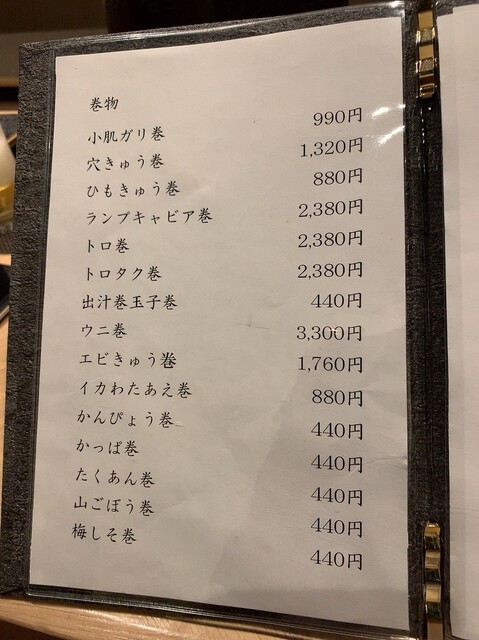 巻物
小肌ガリ巻 990円
穴きゅう巻 1,320円
ひもきゅう巻 880円
ランプキャビア巻 2,380円
トロ巻 2,380円
トロタク巻 2,380円
出汁巻玉子巻 440円
ウニ巻 3,300円
エビきゅう巻 1,760円
イカわたあえ巻 880円
かんぴょう巻 440円
かっぱ巻 440円
たくあん巻 440円
山ごぼう巻 440円
梅しそ巻 440円